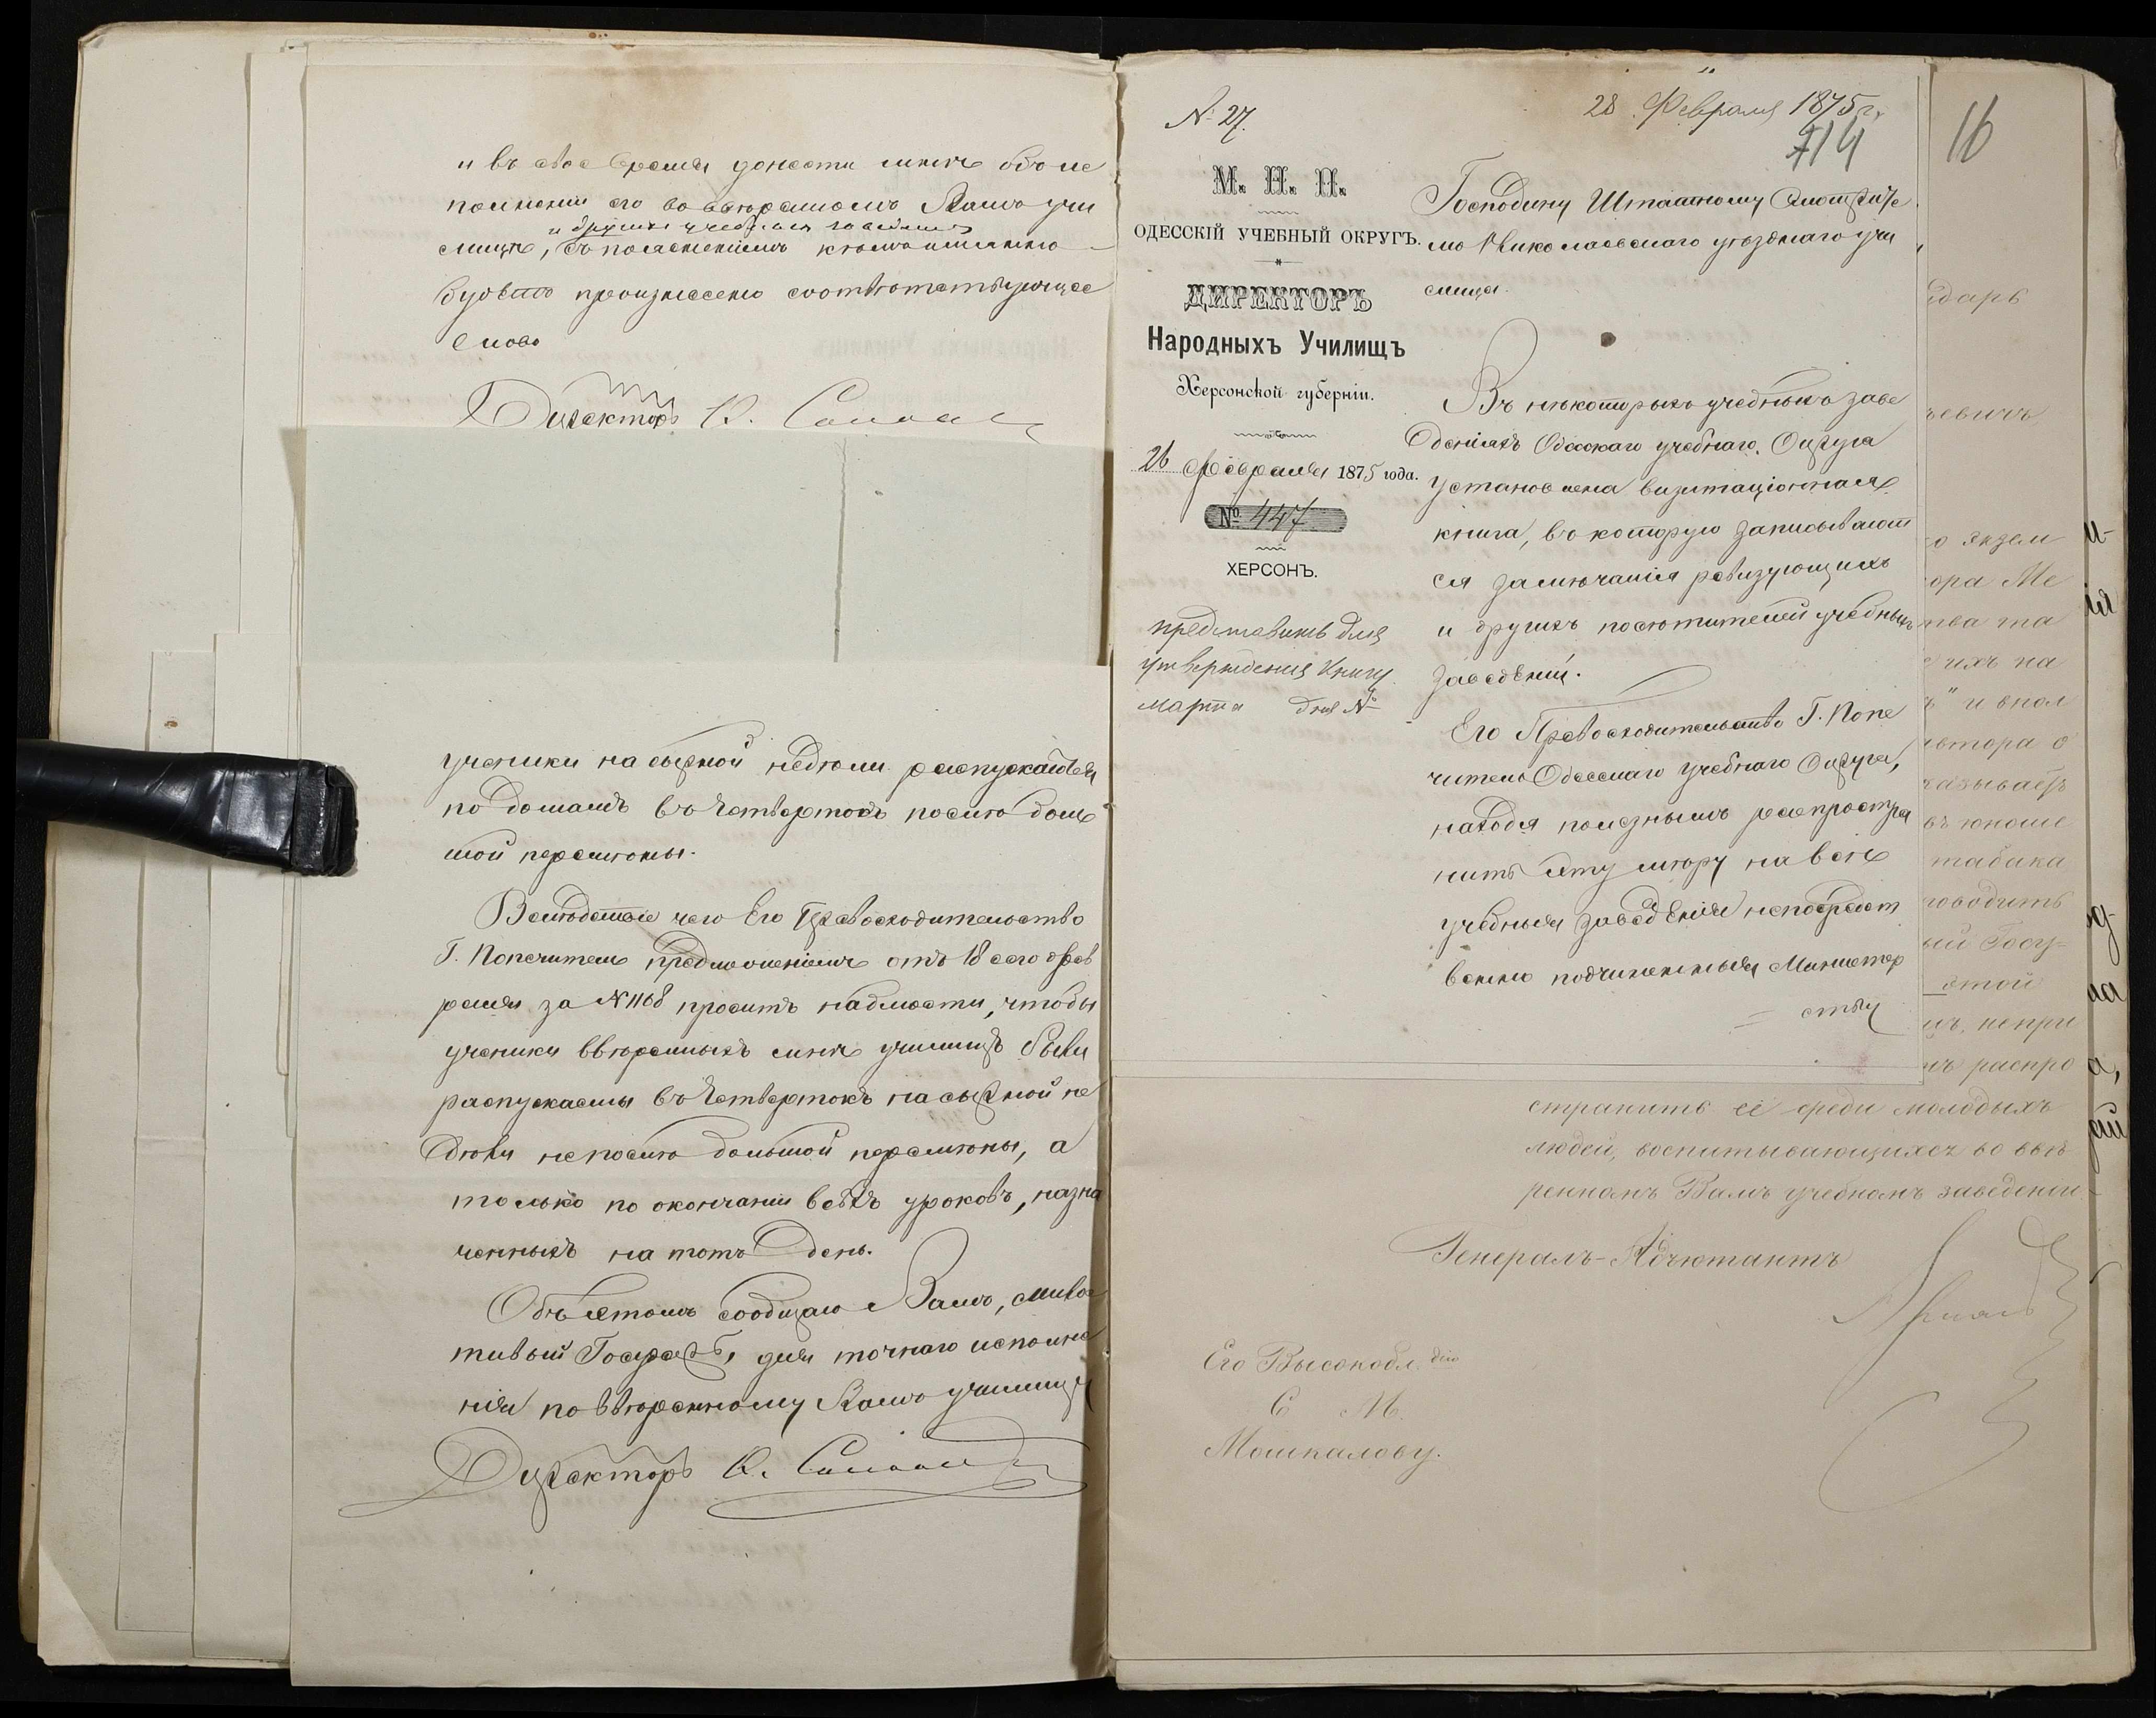 и въ свое время донести мнѣ объ ис
полненіи его во ввѣренномъ Вамъ учи
и другихъ учебныхъ заведеніяхъ
лищѣ, съ поясненіемъ кѣмъ именно
будетъ произнесено соотвѣтствующее
слово
Директоръ К.
ученики на сырной недѣли распускаются
по домамъ въ Четвертокъ послѣ боль
шой перемѣны.
Вслѣдствіе чего Его Превосходительство
Г. Попечитель предложеніемъ отъ 18 сего Фев
раля за № 1168 проситъ наблюсти, чтобы
ученики ввѣренныхъ мнѣ училищъ были
распускаемы въ Четвертокъ на сырной не
дѣли не послѣ большой перемѣны, а
только по окончаніи всѣхъ уроковъ, назна
ченныхъ на тотъ день.
Объ этомъ сообщаю Вамъ, Милос
тивый Государь, для точнаго исполне
нія по ввѣренному Вамъ училищу
Директоръ К.
№ 27.
28 Февраля 1875 г.
714
16
М. Н. П.
ОДЕССКІЙ УЧЕБНЫЙ ОКРУГЪ.
ДИРЕКТОРЪ
Народныхъ Училищъ
Херсонской губерніи.
26 Февраля 1875 года.
№ 447
ХЕРСОНЪ.
представить для
утвержденія книгу
марта дня №
Господину Штатному Смотрите
лю Николаевскаго уѣзднаго учи
лища.
Въ нѣкоторыхъ учебныхъ заве
деніяхъ Одесскаго учебнаго Округа
установлена визитаціонная
книга, въ которую записывают
ся заключенія ревизующихъ
и другихъ посѣтителей учебныхъ
заведеній.
Его Превосходительство Г. Попе
читель Одесскаго учебнаго Округа,
находя полезнымъ распростра
нить эту мѣру на всѣ
учебныя заведенія непосредст
венно подчиненныя Министер
ству
ударь
ьевичъ,
о экзем
ора Ме
тва та
ихъ на
ъ" и впол
автора о
казываетъ
въ юноше
табака
товодить
ый Госу-
этой
мъ, непри
мъ распро
странить ее среди молодыхъ
людей, воспитывающихся во ввѣ
ренномъ Вамъ учебномъ заведеніи
Генералъ-Адъютантъ
Его Высокобл. дію
С. И.
Мошкалову.